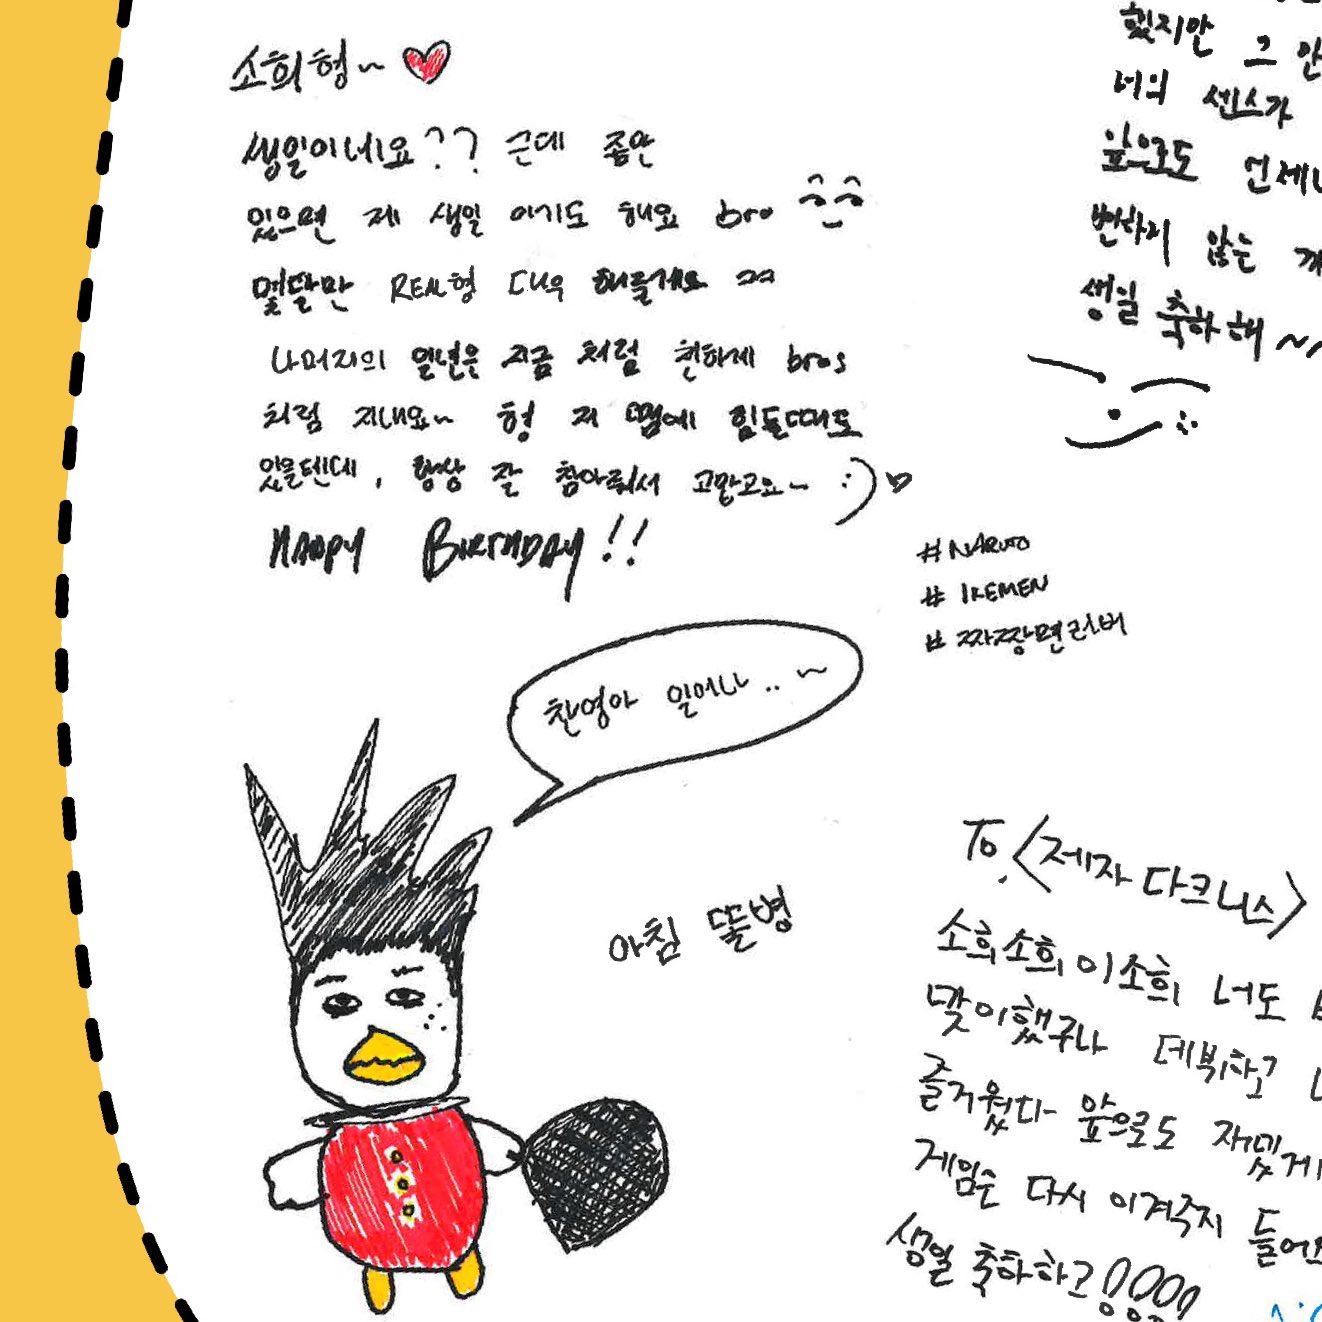 소희형~
생일이네요?? 근데 좀만
있으면 제 생일 이기도 해요 bro
몇달만 REAL형 대우 해줄게요 ㅋㅋ
나머지의 일년은 지금 처럼 편하게 bros
처럼 지내요~ 형 저 땜에 힘들때도
있을텐데, 항상 잘 참아줘서 고맙고요~ :)
HAPPY BIRTHDAY!!
#NARUTO
# IKEMEN
# 짜장면러버
찬영아 일어나..~
아침 똘병
했지만 그
너의 센스가
앞으로도 언제나
변하지 않는
생일 축하해~~
To.<제자 다크니스>
소희소희이소희 너도
맞이했구나 데뷔하고
즐거웠다 앞으로도 재밌게
게임은 다시 이겨주지 들어와
생일 축하하고!!!!!